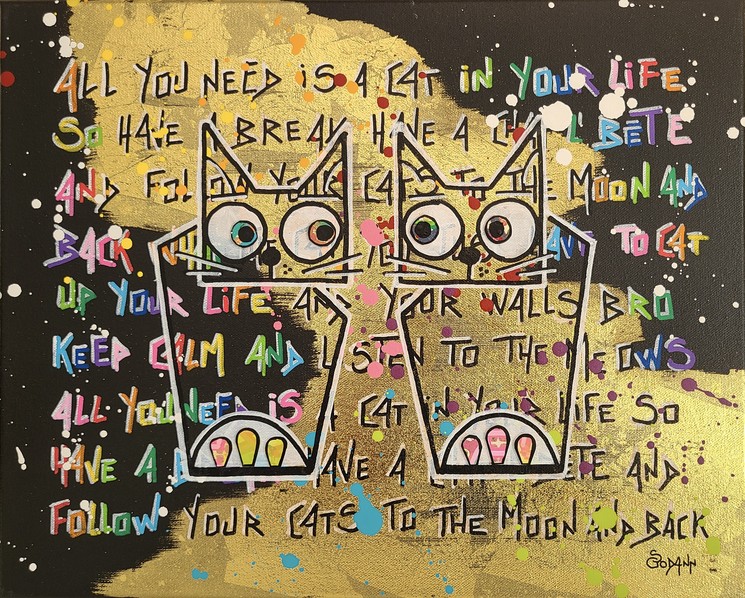 ALL YOU NEED iS A CAT iN YOUR LiFE
SO HAVE A BREAK HAVE A BÊTE
AND FOLLOW YOUR CATS TO THE MOON AND
BACK HAVE TO CAT
UP YOUR LiFE AND YOUR WALLS BRO
KEEP CALM AND LISTEN TO THE MEOWS
ALL YOU NEED iS A CAT iN YOUR LiFE SO
HAVE A HAVE A BETE AND
FOLLOW YOUR CATS TO THE MOON AND BACK
SGODANN